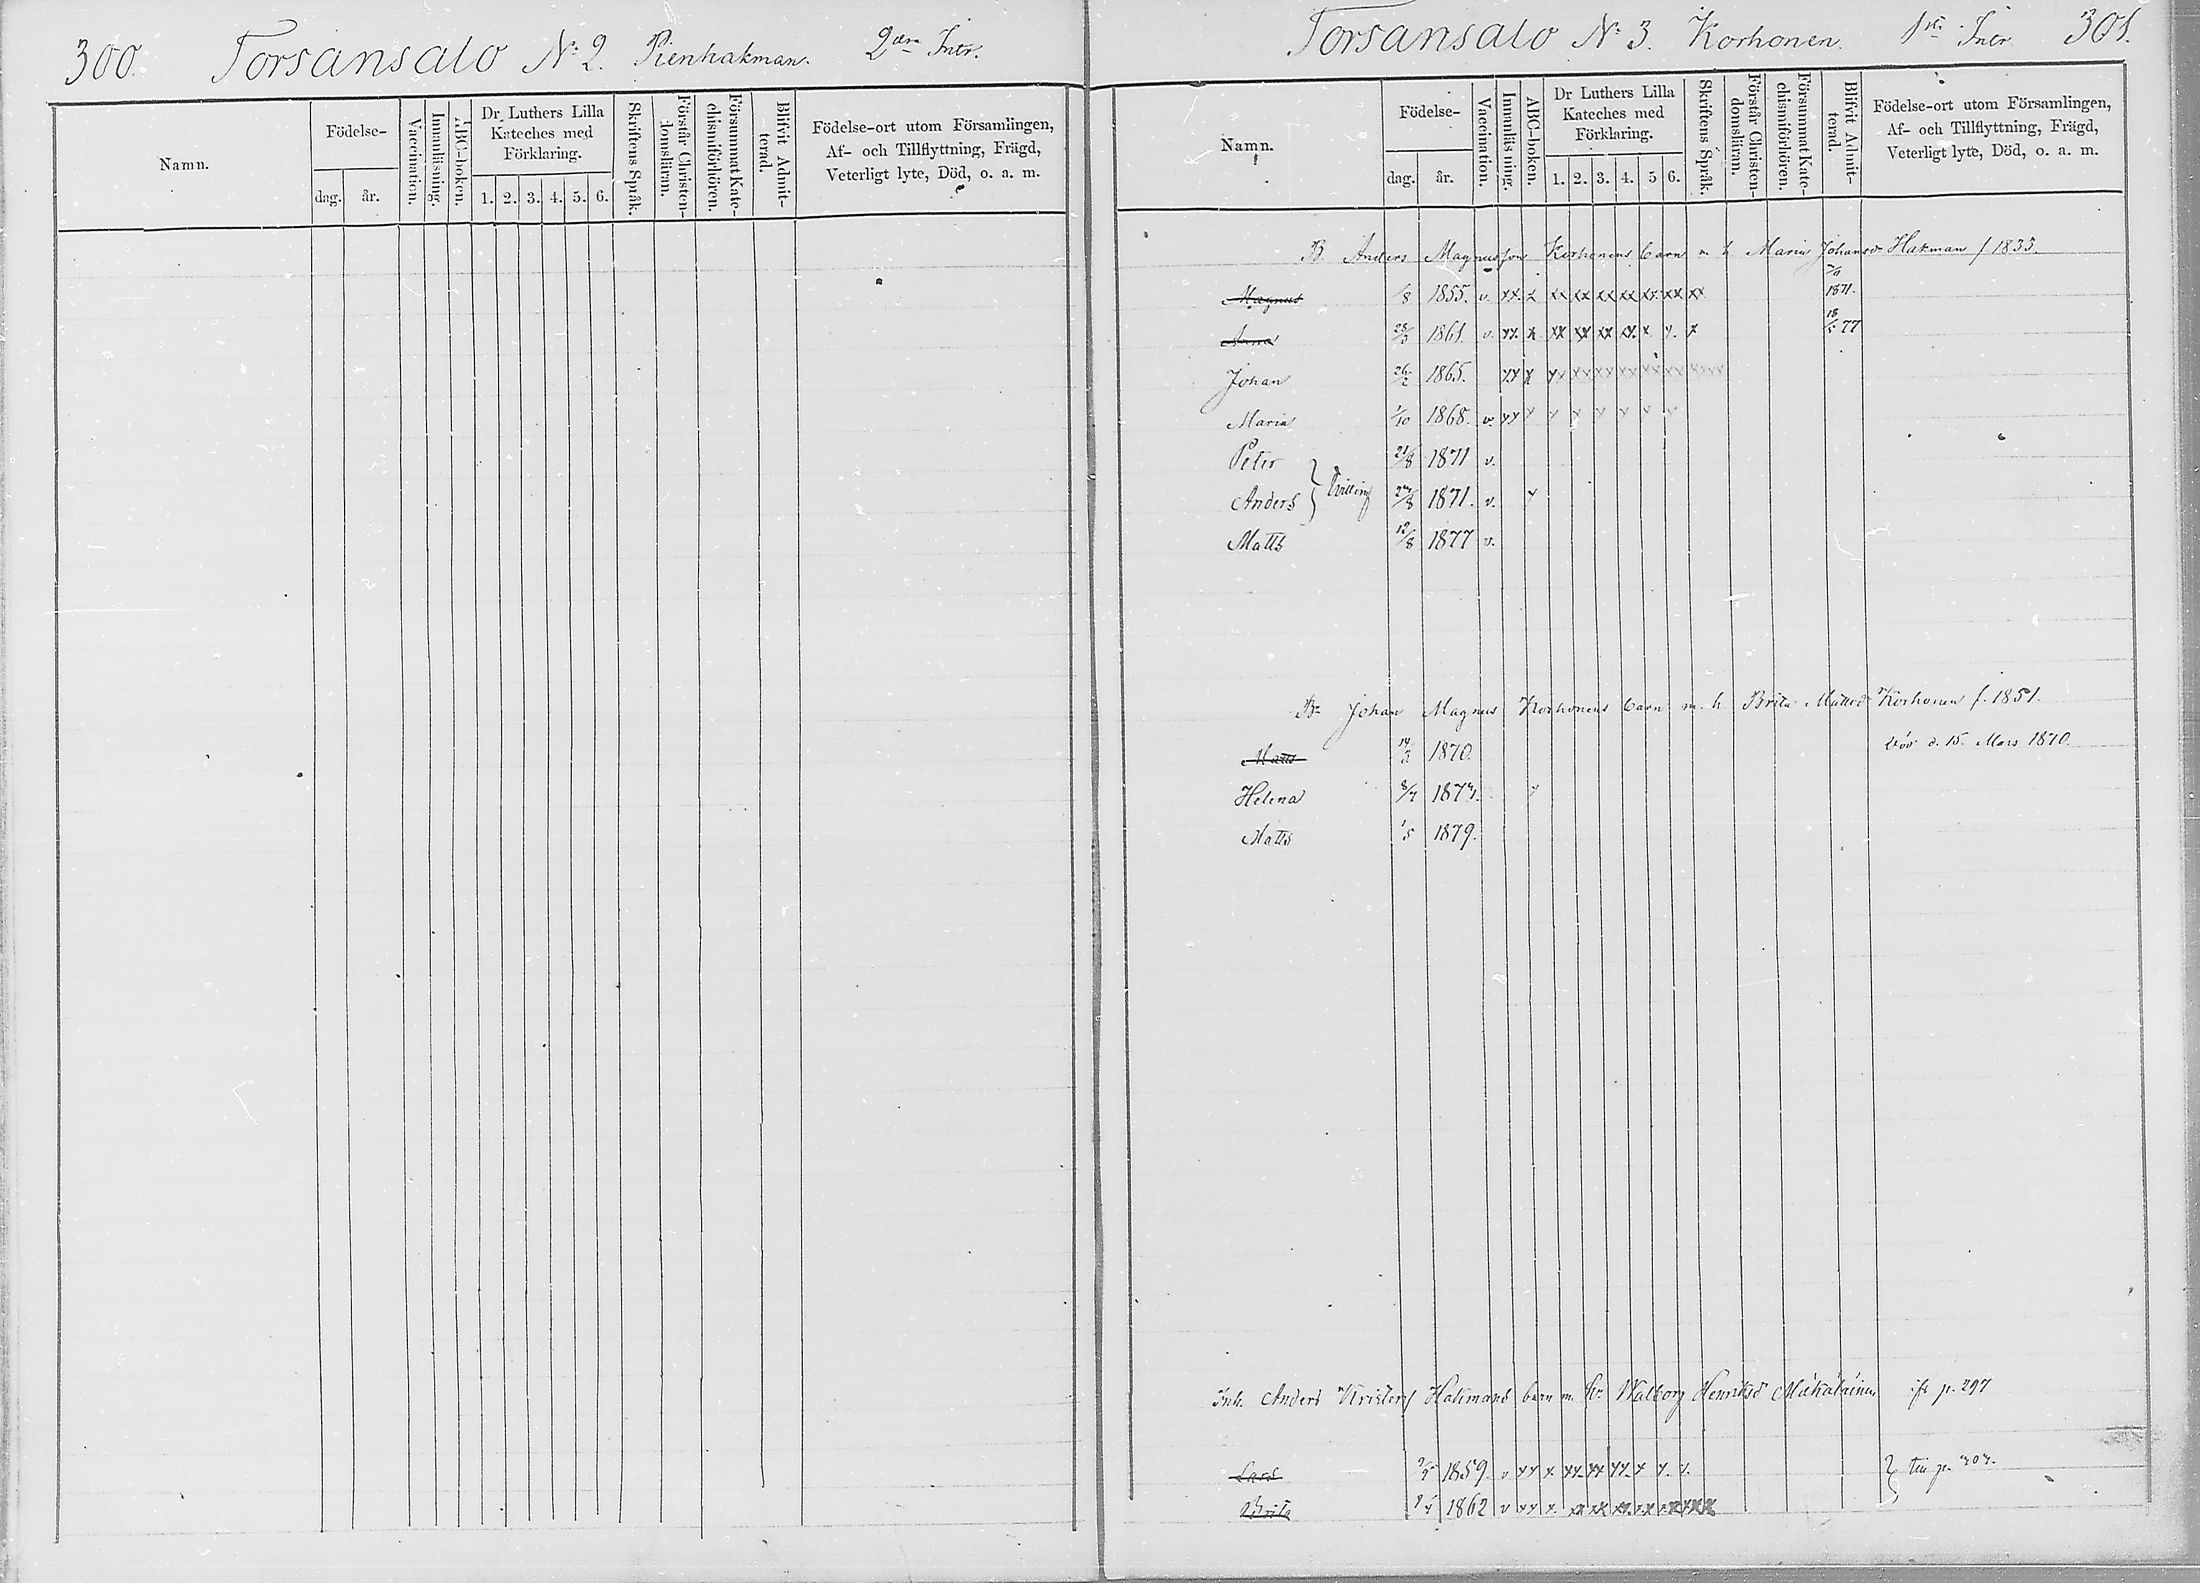 300. Torsansalo N:2. Pienhakman. 2dra Intr.
Namn.
Födelse-
dag. år.
Vaccination.
Innanläsning.
ABC-boken.
Dr Luthers Lilla
Kateches med
Förklaring.
1. 2. 3. 4. 5. 6.
Skriftens Språk.
Förstår Christen-
domsläran.
Försummat Kate-
chismiförhören.
Blifvit Admit-
terad.
Födelse-ort utom Församlingen,
Af- och Tillflyttning, Frägd,
Veterligt lyte, Död, o. a. m.
Torsansalo N:3. Korhonen. 1sta Intr. 301.
Namn.
Födelse-
dag. år.
Vaccination.
Innanläsning.
ABC-boken.
Dr Luthers Lilla
Kateches med
Förklaring.
1. 2. 3. 4. 5 6.
Skriftens Språk.
Förstår Christen-
domsläran.
Försummat Kate-
chismiförhören.
Blifvit Admit-
terad.
Födelse-ort utom Församlingen,
Af- och Tillflyttning, Frägd,
Veterligt lyte, Död, o. a. m.
B Anders Magnusson Korhonens barn m h Maria Johansdr Hakman f 1833.
Magnus 1855. v. xx x xx xx xx xx xx xx xx 1871.
Anna 1861. v. xx. x xx xx xx xx. x x. x 18/5 77
Johan 26/2 1865. xx x xx xx xx xx xx xx
Maria 1/10 1868. v. xx x x x x x x x
Peter 21/8 1871 v.
Anders } Tvilling 1871. v. x
Matts 12/8 1877 v.
Bn Johan Magnus Korhonens barn m. h. Brita Mattsd Korhonen f. 1851.
Matts 14/3 1870. död d. 15. Mars 1870.
Helena x
Matts 1/5 1879.
Inh. Anders Kristers Hakmans barn m. hu Walborg Henriksd Makaläinen fr p. 297
Lars 1859. v xx x. xx xx xx x x. x.
Brita 1862 v xx x. xx xx xx xx